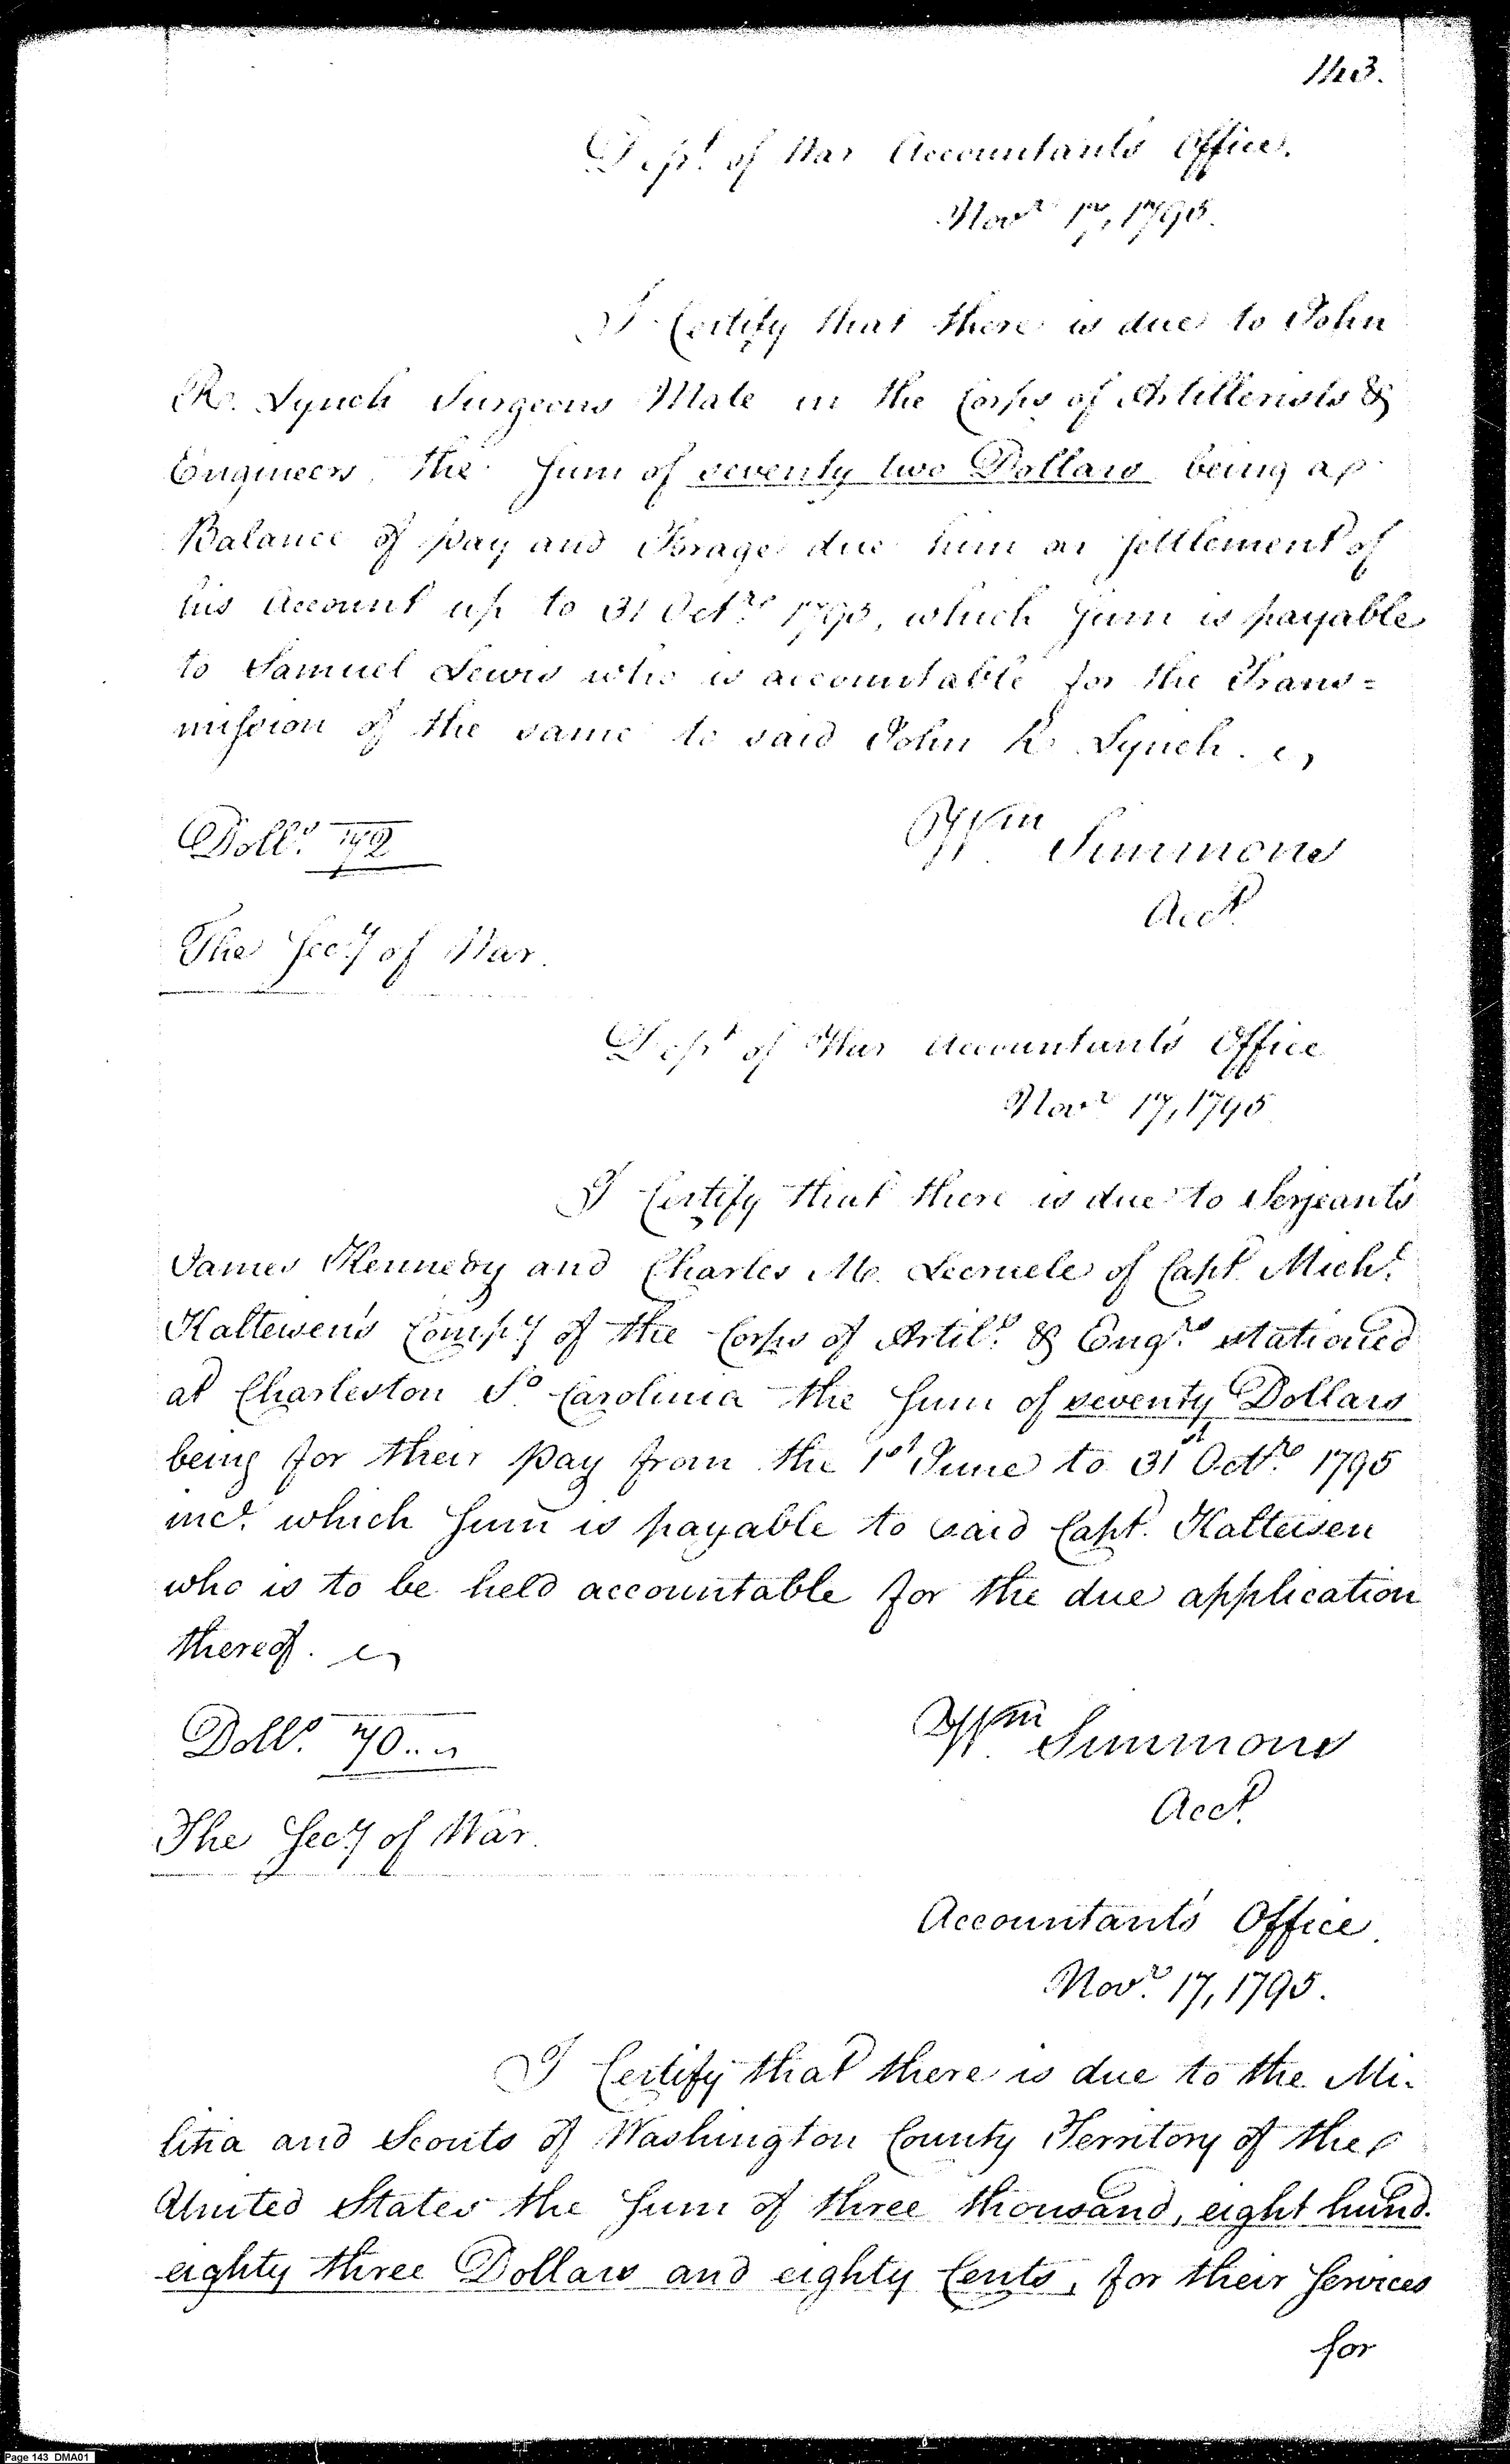 143.
Dept. of War Accountant's Office.
Novr 17, 1795.
I Certify that there is due to John
R. Lynch Surgeons Mate in the Corps of Artillerists &
Engineers, the Sum of seventy two Dollars being a
Balance of pay and Forage due him on Settlement of
his Account up to 31 Octre 1795, which Sum is payable
to Samuel Lewis who is accountable for the Trans=
mission of the same to said John R. Lynch.
Dolls. 72
Wm Simmons
Acct.
The Secy of War.
Dept of War Accountant's Office
Novr 17, 1795
I Certify that there is due to Serjeants
James Kennedy and Charles M. of Capt. Michl.
Kalteisen's Compy of the Corps of Artils. & Engrs stationed
at Charleston So Carolina the Sum of seventy Dollars
being for their pay from the 1st June to 31st Octre 1795
incl. which Sum is payable to said Capt. Kalteisen
who is to be held accountable for the due application
thereof.
Dolls. 70..
Wm Simmons
Acct.
The Secy of War.
Accountant's Office.
Novr. 17, 1795.
I Certify that there is due to the Mi-
litia and Scouts of Washington County Territory of the
United States the Sum of three thousand, eight hund.
eighty three Dollars and eighty Cents, for their Services
for
Page 143 DMA01